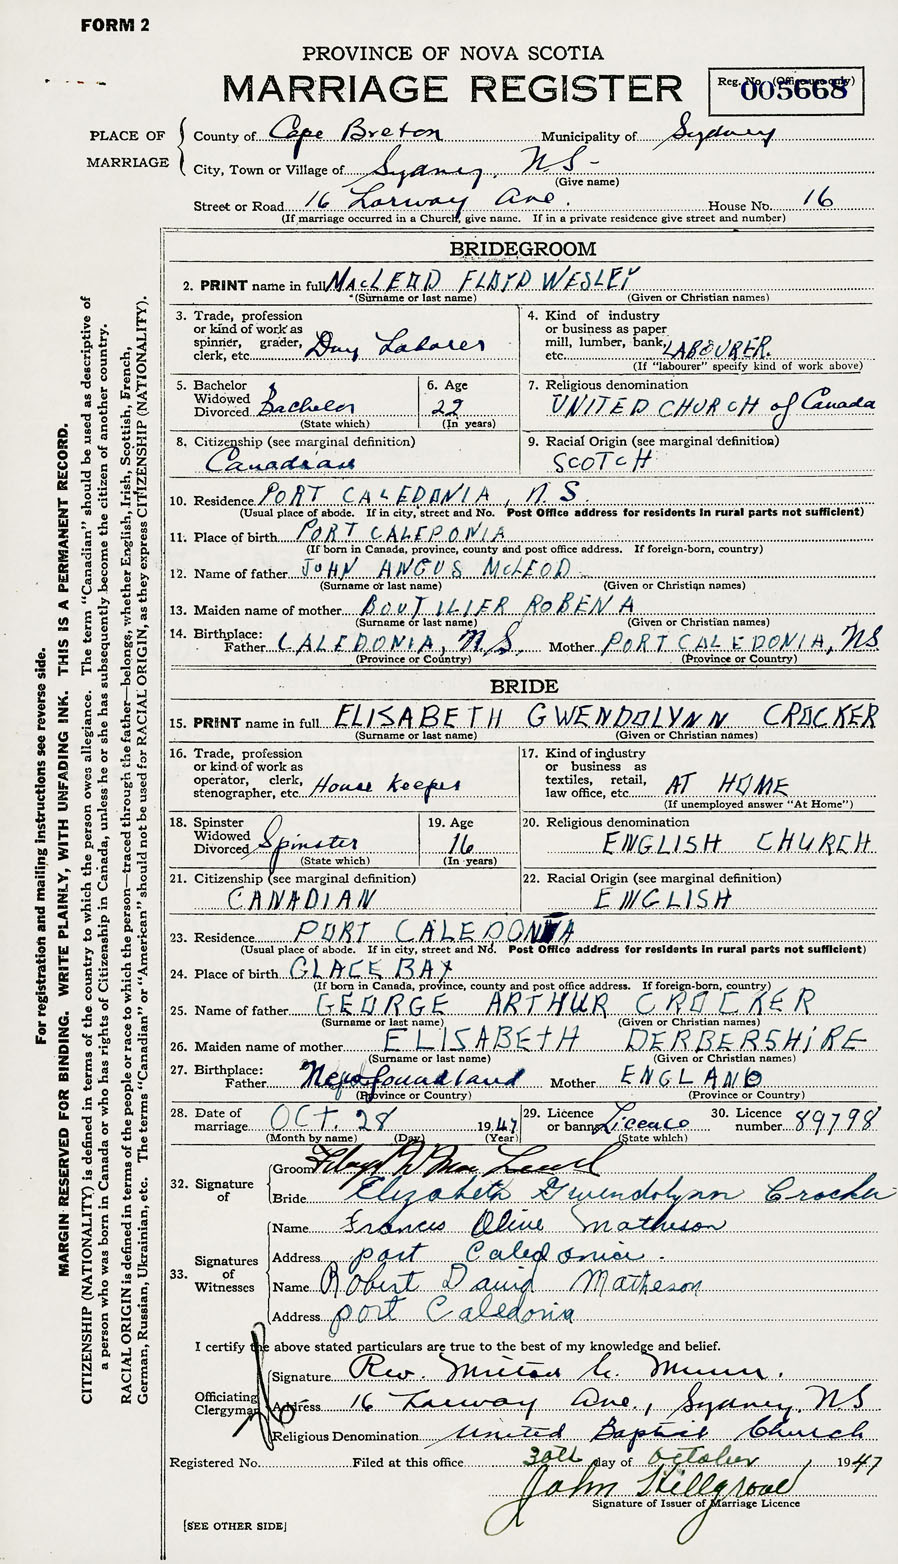 FORM 2
PROVINCE OF NOVA SCOTIA
MARRIAGE REGISTER
Reg. No. (Office use only)
005668
PLACE OF MARRIAGE
County of Cape Breton Municipality of Sydney
City, Town or Village of Sydney, NS-
(Give name)
Street or Road 16 Lorway Ave. House No. 16
(If marriage occurred in a Church, give name. If in a private residence give street and number)
BRIDEGROOM
2. PRINT name in full MacLEOD FLOYD WESLEY
(Surname or last name) (Given or Christian names)
3. Trade, profession or kind of work as spinner, grader, clerk, etc. Day Laborer
4. Kind of industry or business as paper mill, lumber, bank, etc. LABOURER.
(If "labourer" specify kind of work above)
5. Bachelor Widowed Divorced Bachelor
(State which)
6. Age 22
(In years)
7. Religious denomination
UNITED CHURCH of Canada
8. Citizenship (see marginal definition)
Canadian
9. Racial Origin (see marginal definition)
SCOTCH
10. Residence PORT CALEDONIA, N.S.
(Usual place of abode. If in city, street and No. Post Office address for residents in rural parts not sufficient)
11. Place of birth PORT CALEDONIA
(If born in Canada, province, county and post office address. If foreign-born, country)
12. Name of father JOHN ANGUS McLEOD
(Surname or last name) (Given or Christian names)
13. Maiden name of mother BOUTILIER ROBENA
(Surname or last name) (Given or Christian names)
14. Birthplace: Father CALEDONIA, N.S. Mother PORT CALEDONIA, NS
(Province or Country) (Province or Country)
BRIDE
15. PRINT name in full ELISABETH GWENDOLYNN CROCKER
(Surname or last name) (Given or Christian names)
16. Trade, profession or kind of work as operator, clerk, stenographer, etc. House Keeper
17. Kind of industry or business as textiles, retail, law office, etc. AT HOME
(If unemployed answer "At Home")
18. Spinster Widowed Divorced Spinster
(State which)
19. Age 16
(In years)
20. Religious denomination
ENGLISH CHURCH
21. Citizenship (see marginal definition)
CANADIAN
22. Racial Origin (see marginal definition)
ENGLISH
23. Residence PORT CALEDONIA
(Usual place of abode. If in city, street and No. Post Office address for residents in rural parts not sufficient)
24. Place of birth GLACE BAY
(If born in Canada, province, county and post office address. If foreign-born, country)
25. Name of father GEORGE ARTHUR CROCKER
(Surname or last name) (Given or Christian names)
26. Maiden name of mother ELISABETH DERBERSHIRE
(Surname or last name) (Given or Christian names)
27. Birthplace: Father Newfoundland Mother ENGLAND
(Province or Country) (Province or Country)
28. Date of marriage OCT. 28 1947
(Month by name) (Day) (Year)
29. Licence or banns Licence
(State which)
30. Licence number 89798
32. Signature of
Groom Floyd W Mac Leod
Bride Elizabeth Gwendolynn Crocker
33. Signatures of Witnesses
Name Francis Olive Matheson
Address port Caledonia.
Name Robert David Matheson
Address port Caledonia
I certify the above stated particulars are true to the best of my knowledge and belief.
Officiating Clergyman
Signature Rev. Milton G. Munn.
Address 16 Lorway Ave., Sydney, NS
Religious Denomination United Baptist Church
Registered No. Filed at this office 30th day of October 1947
John Hillgrove
Signature of Issuer of Marriage Licence
[SEE OTHER SIDE]
For registration and mailing instructions see reverse side.
MARGIN RESERVED FOR BINDING. WRITE PLAINLY, WITH UNFADING INK. THIS IS A PERMANENT RECORD.
CITIZENSHIP (NATIONALITY) is defined in terms of the country to which the person owes allegiance. The term "Canadian" should be used as descriptive of
a person who was born in Canada or who has rights of Citizenship in Canada, unless he or she has subsequently become the citizen of another country.
RACIAL ORIGIN is defined in terms of the people or race to which the person—traced through the father—belongs, whether English, Irish, Scottish, French,
German, Russian, Ukrainian, etc. The terms "Canadian" or "American" should not be used for RACIAL ORIGIN, as they express CITIZENSHIP (NATIONALITY).